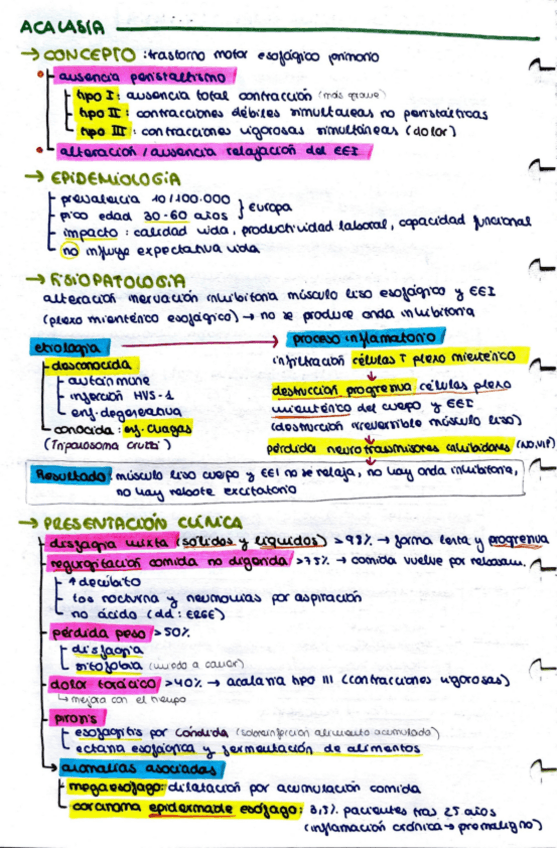 ACALASIA
→ CONCEPTO: trastorno motor esofágico primario
ausencia peristaltismo
tipo I: ausencia total contracción (más grave)
tipo II: contracciones débiles simultáneas no peristálticas
tipo III: contracciones vigorosas simultáneas (dolor)
alteración / ausencia relajación del EEI
→ EPIDEMIOLOGÍA
prevalencia 10/100.000
pico edad 30-60 años } Europa
impacto: calidad vida, productividad laboral, capacidad funcional
no influye expectativa vida
→ FISIOPATOLOGÍA
alteración inervación inhibitoria músculo liso esofágico y EEI
(plexo mientérico esofágico) → no se produce onda inhibitoria
etiología → proceso inflamatorio
desconocida
autoinmune
infección HVS-1
enf. degenerativa
conocida: enf. Chagas
(Tripanosoma cruzi)
infiltración células T plexo mientérico
destrucción progresiva células plexo
mientérico del cuerpo y EEI
(destrucción irreversible músculo liso)
pérdida neurotransmisores inhibidores (NO, VIP)
Resultado: músculo liso cuerpo y EEI no se relaja, no hay onda inhibitoria,
no hay rebote excitatorio
→ PRESENTACIÓN CLÍNICA
disfagia mixta (sólidos y líquidos) >98% → forma lenta y progresiva
regurgitación comida no digerida >75% → comida vuelve por rebosam.
↑ decúbito
tos nocturna y neumonías por aspiración
no ácido (dd: ERGE)
pérdida peso >50%
disfagia
sitofobia (miedo a comer)
dolor torácico >40% → acalasia tipo III (contracciones vigorosas)
↳ mejora con el tiempo
pirosis
esofagitis por cándida (sobreinfección alimento acumulado)
ectasia esofágica y fermentación de alimentos
anomalías asociadas
megaesófago: dilatación por acumulación comida
carcinoma epidermoide esófago: 3,5% pacientes tras 25 años
(inflamación crónica → premaligno)